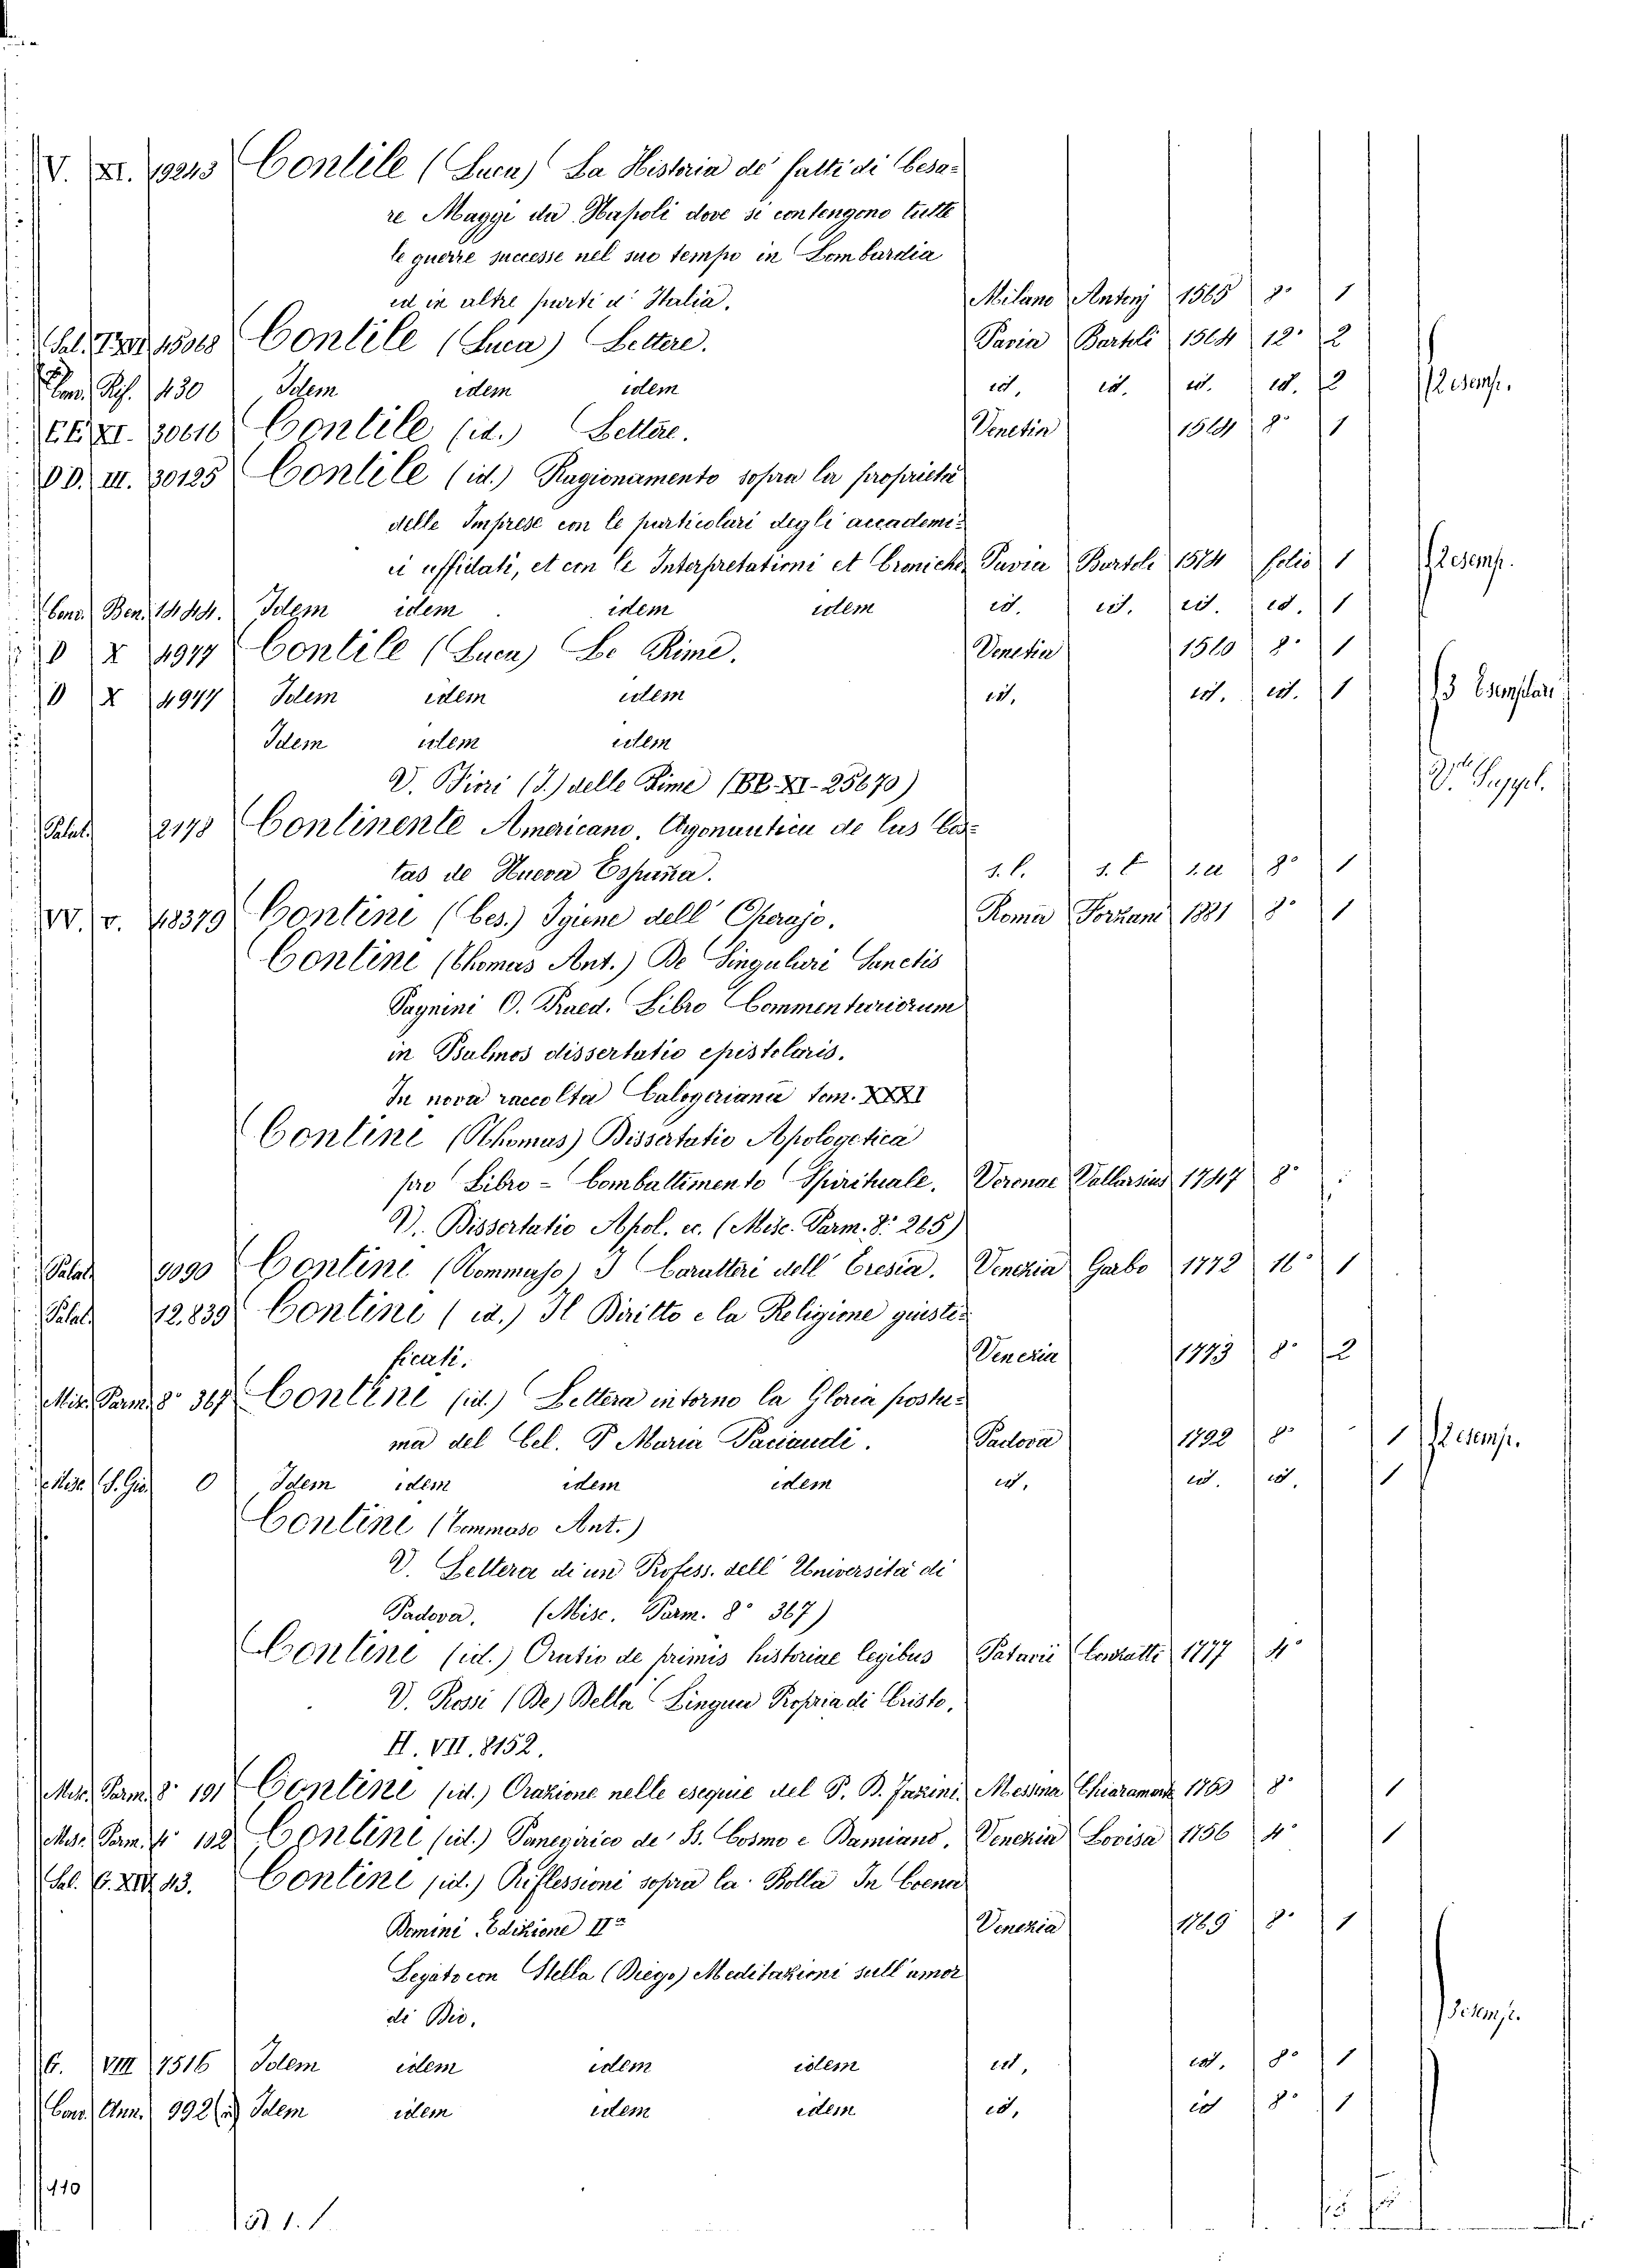 V. XI. 19243 Contile (Luca) La Historia de' fatti di Cesa-
re Maggi da Napoli dove si contengono tutte
le guerre successe nel suo tempo in Lombardia
ed in altre parti d'Italia. Milano Antonj 1565 8° 1
Sal. 15018 Contile (Luca) Lettere. Pavia Bartoli 1564 12° 2
430 Idem idem idem id. id. id. id. 2 2 esemp.
EE. XI. 30616 Contile (id.) Lettere. Venetia 1564 8° 1
DD. III. 30125 Contile (id.) Ragionamento sopra la proprietà
delle Imprese con le particolari degli accademi-
ci affidati, et con le Interpretationi et Croniche Pavia Bartoli 1574 folio 1 2 esemp.
Conv. Ben. 1444. Idem idem idem idem id. id. id. id. 1
D X 4977 Contile (Luca) Le Rime. Venetia 1560 8° 1
D X 4977 Idem idem idem id. id. id. 1 3 Esemplari
Idem idem idem
V. Fiori (I.) delle Rime (BB. XI-25670) V. Suppl.
Palat. 2178 Continente Americano, Argonautica de las Cos-
tas de Nueva España. s. l. s. t. s. a 8° 1
VV. V. 48379 Contini (Ces.) Igiene dell'Operajo. Roma Forzani 1881 8° 1
Contini (Thomas Ant.) De Singulari Sanctis
Pagnini O. Praed. Libro Commentariorum
in Psalmos dissertatio epistolaris.
In nova raccolta Calogeriana tom. XXXI
Contini (Thomas) Dissertatio Apologetica
pro Libro - Combattimento Spirituale. Veronae Vallarsius 1747 8°
V. Dissertatio Apol. ec. (Misc. Parm. 8° 265)
Palat. 9090 Contini (Tommaso) I Caratteri dell'Eresia. Venezia Garbo 1772 16° 1
Palat. 12.839 Contini (id.) Il Diritto e la Religione giusti-
ficati. Venezia 1773 8° 2
Misc. Parm. 8° 367 Contini (id.) Lettera intorno la Gloria postu-
ma del Cel. P. Maria Paciaudi. Padova 1792 8° 1 2 esemp.
Misc. S. Gio. O Idem idem idem idem id. id. id. 1
Contini (Tommaso Ant.)
V. Lettera di un Profess. dell'Università di
Padova. (Misc. Parm. 8° 367)
Contini (id.) Oratio de primis historiae legibus Patavii Conzatti 1777 4°
V. Rossi (De) Della Lingua Propria di Cristo.
H. VII. 8152.
Misc. Parm. 8° 191 Contini (id.) Orazione nelle esequie del P. B. Messina Chiaramonte 1763 8° 1
Misc. Parm. 4° 102 Contini (id.) Panegirico de' B. Cosmo e Damiano. Venezia Lovisa 1756 4° 1
Sal. G. XIV. 43. Contini (id.) Riflessioni sopra la Bolla In Coena
Domini. Edizione IIa Venezia 1769 8° 1
Legato con Stella (Diego) Meditazioni sull'amor
di Dio. 3 esemp.
G. VIII 7516 Idem idem idem idem id. id. 8° 1
Conv. Ann. 992 Idem idem idem idem id. id 8° 1